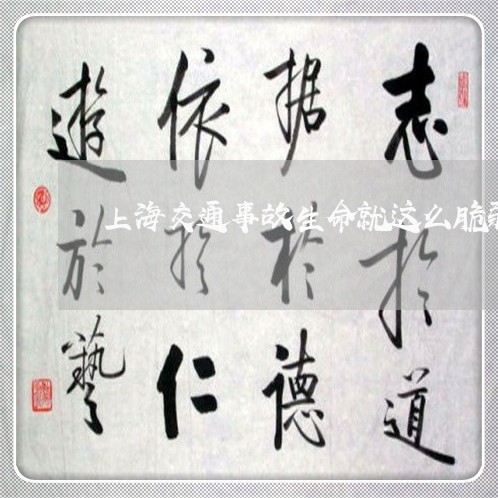 志於道
据於德
依於仁
遊於藝
上海交通事故生命就这么脆